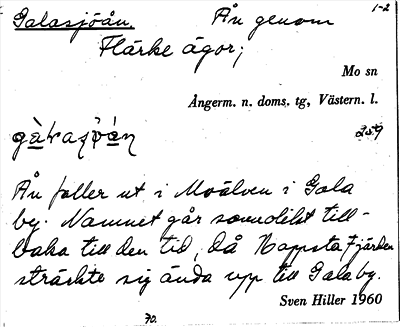 Galasjöån. Ån genom 1-2
Flärke ägor;
Mo sn
Ångerm. n. doms. tg, Västern. l.
259
Ån faller ut i Moälven i Gala
by. Namnet går sannolikt till-
baka till den tid, då Happstafjärden
sträckte sig ända upp till Gala by.
Sven Hiller 1960
70.